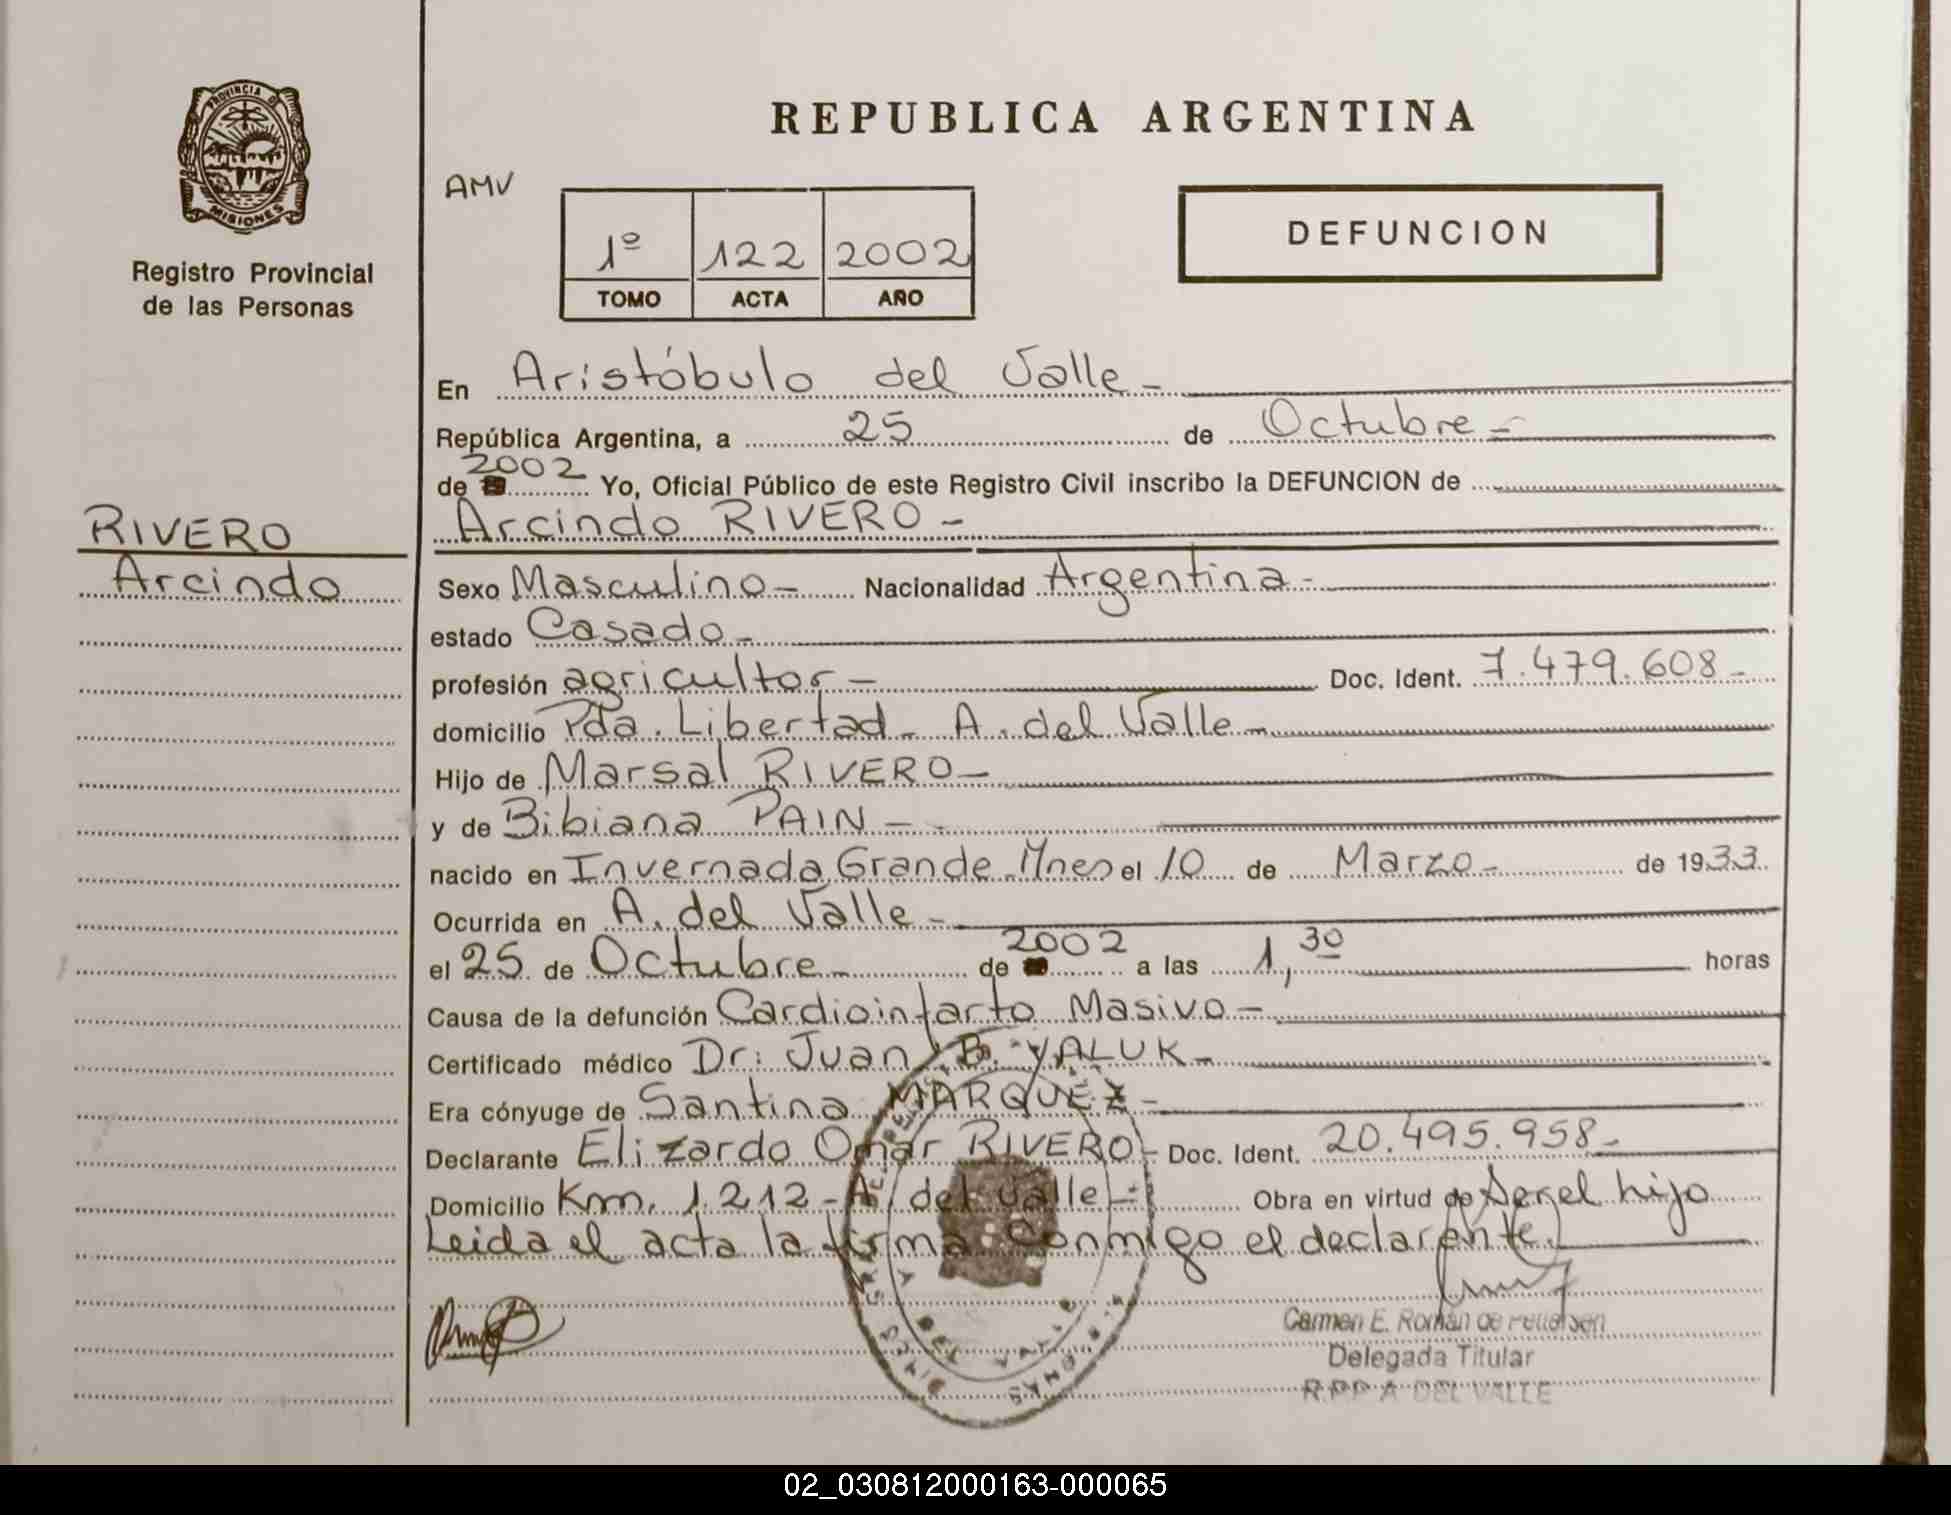 PROVINCIA DE
MISIONES
Registro Provincial
de las Personas
RIVERO
Arcindo
REPUBLICA ARGENTINA
AMV
1º 122 2002
TOMO ACTA AÑO
DEFUNCION
En Aristóbulo del Valle -
República Argentina, a 25 de Octubre -
de 2002 Yo, Oficial Público de este Registro Civil inscribo la DEFUNCION de
Arcindo RIVERO -
Sexo Masculino - Nacionalidad Argentina -
estado Casado -
profesión agricultor - Doc. Ident. 7.479.608 -
domicilio Pda. Libertad - A. del Valle -
Hijo de Marsal RIVERO -
y de Bibiana PAIN -
nacido en Invernada Grande - Mnes el 10 de Marzo - de 1933
Ocurrida en A. del Valle -
el 25 de Octubre de 2002 a las 1,30 horas
Causa de la defunción Cardioinfarto Masivo -
Certificado médico Dr. Juan B. YALUK -
Era cónyuge de Santina MARQUEZ -
Declarante Elizardo Omar RIVERO - Doc. Ident. 20.495.958 -
Domicilio Km. 1.212 - A. del Valle - Obra en virtud de Ser el hijo
Leida el acta la firma conmigo el declarante.
Carmen E. Román de
Delegada Titular
R.P.P. A. DEL VALLE
02_030812000163-000065